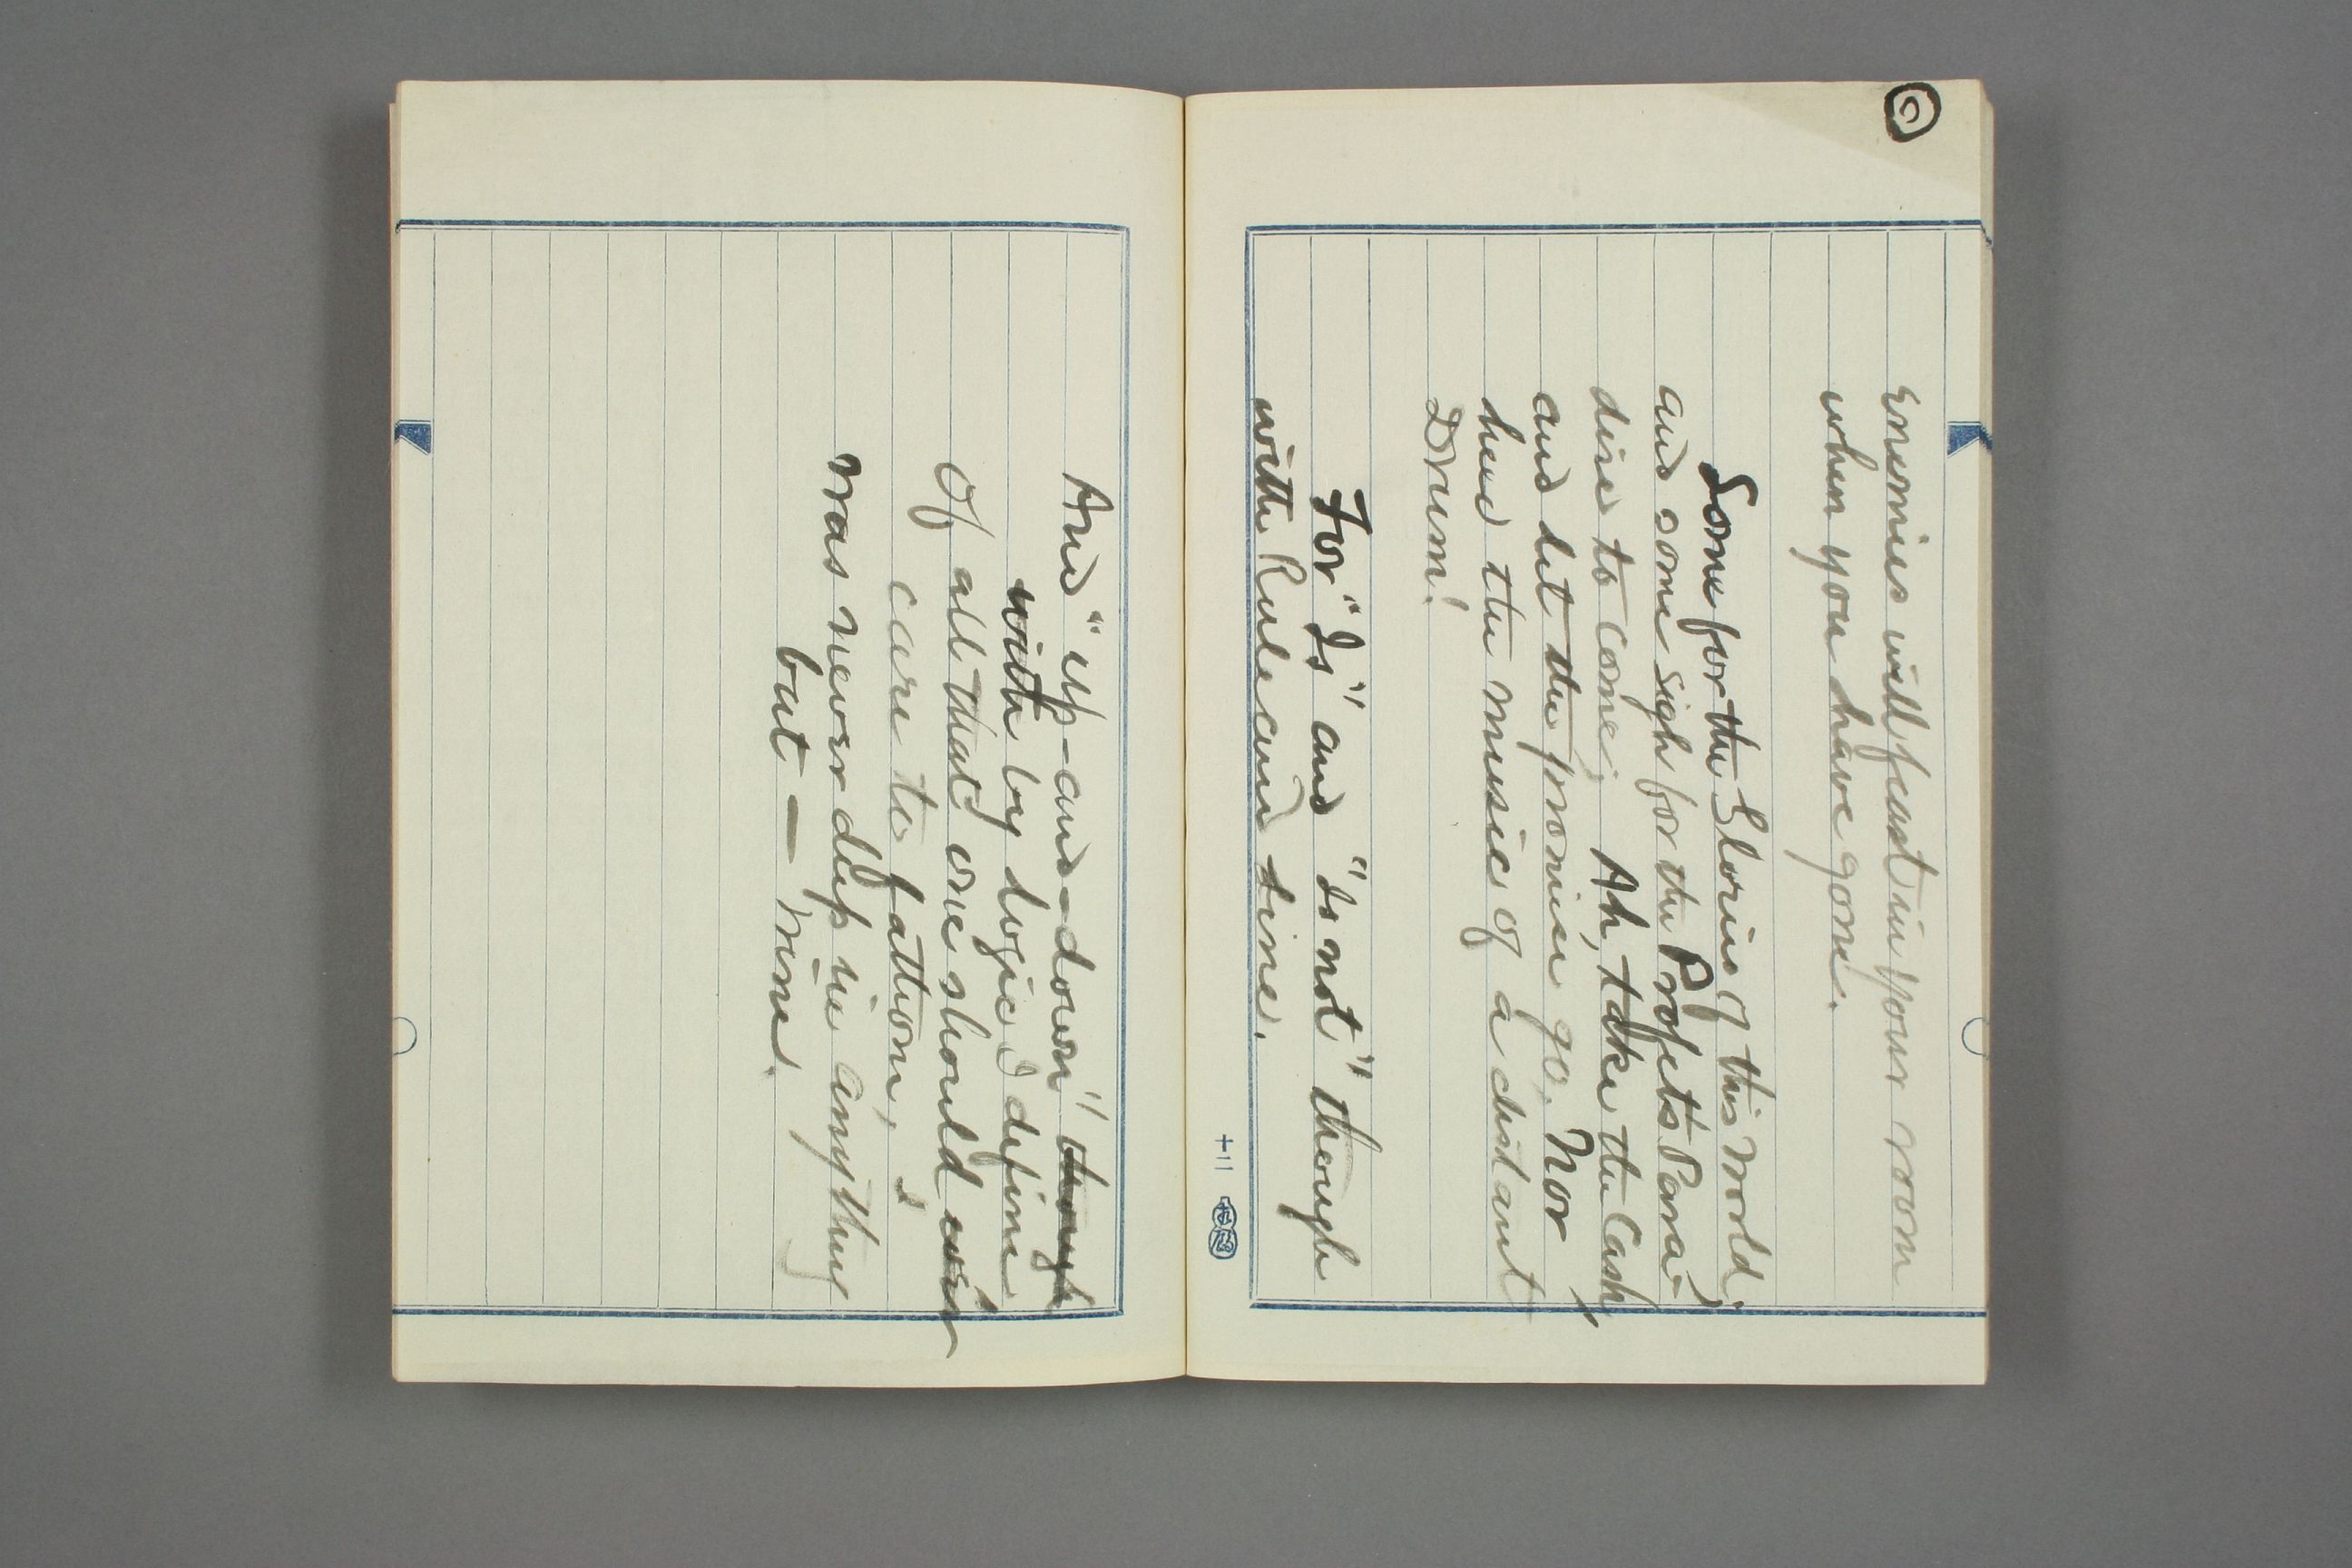 enemies will feast in your room
when you have gone.
Some for the Glories of this world;
and some sigh for the Profet's Para-
dise to come; Ah, take the Cash,
and let the promise go, Nor
heed the music of a distant
Drum!
For "Is" and "Is not" though
with Rule and Line.
And "up-and-down" though
with by Logic I define
Of all that one should
care to fathom, I
was never deep in anything
but — Wine.
十二